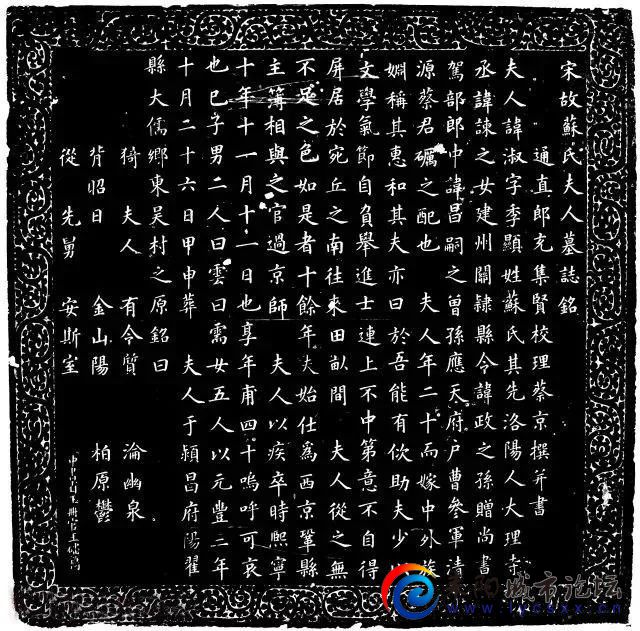 宋故蘇氏夫人墓誌銘
通直郎充集賢校理蔡京撰并書
夫人諱淑字季顯姓蘇氏其先洛陽人大理寺
丞諱諫之女建州關隸縣令諱政之孫贈尚書
駕部郎中諱昌嗣之曾孫應天府户曹參軍清
源蔡君礪之配也 夫人年二十而嫁中外族
姻稱其惠和其夫亦曰於吾能有佽助夫少以
文學氣節自負舉進士連上不中第意不自得
屏居於宛丘之南往來田畝間 夫人從之無
不足之色如是者十餘年夫始仕為西京鞏縣
主簿相與之官過京師 夫人以疾卒時熙寧
十年十一月十一日也享年甫四十嗚呼可哀
也已子男二人曰雲曰需女五人以元豐二年
十月二十六日甲申葬 夫人于潁昌府陽翟
縣大儒鄉東吳村之原銘曰
猗 夫人 有令質 淪幽泉
背昭日 金山陽 柏原鬱
從先舅 安斯室
阳城市论坛